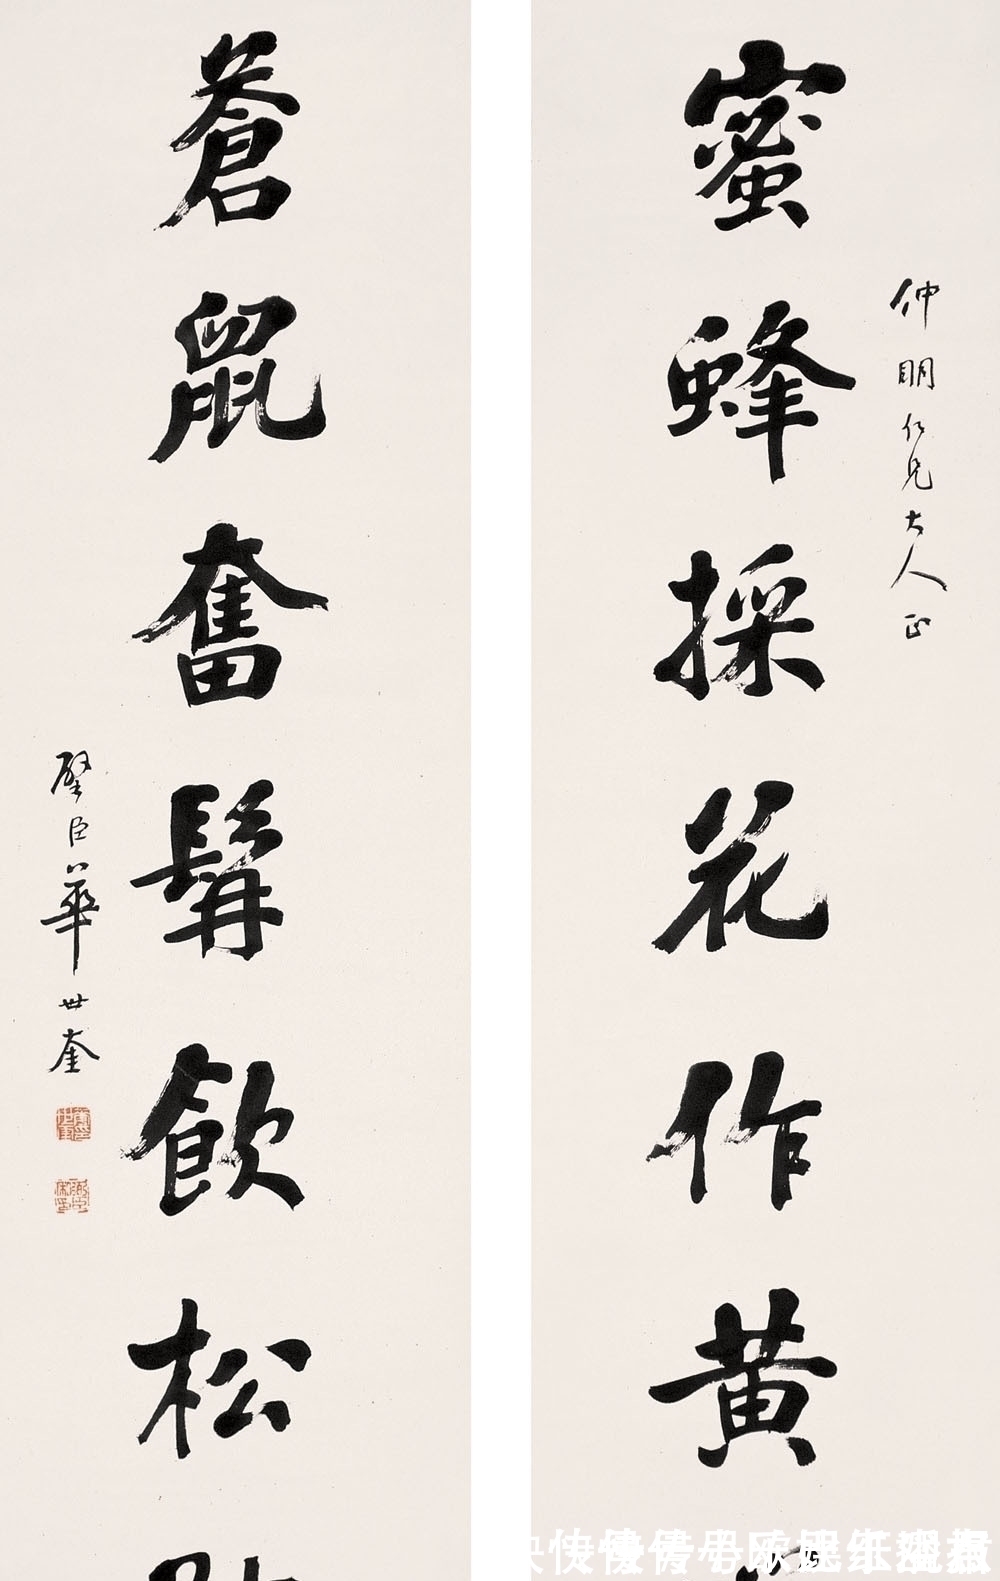 仲明仁兄大人正
蜜蜂採花作黄
蒼鼠奮髯飲松
璧臣華世奎